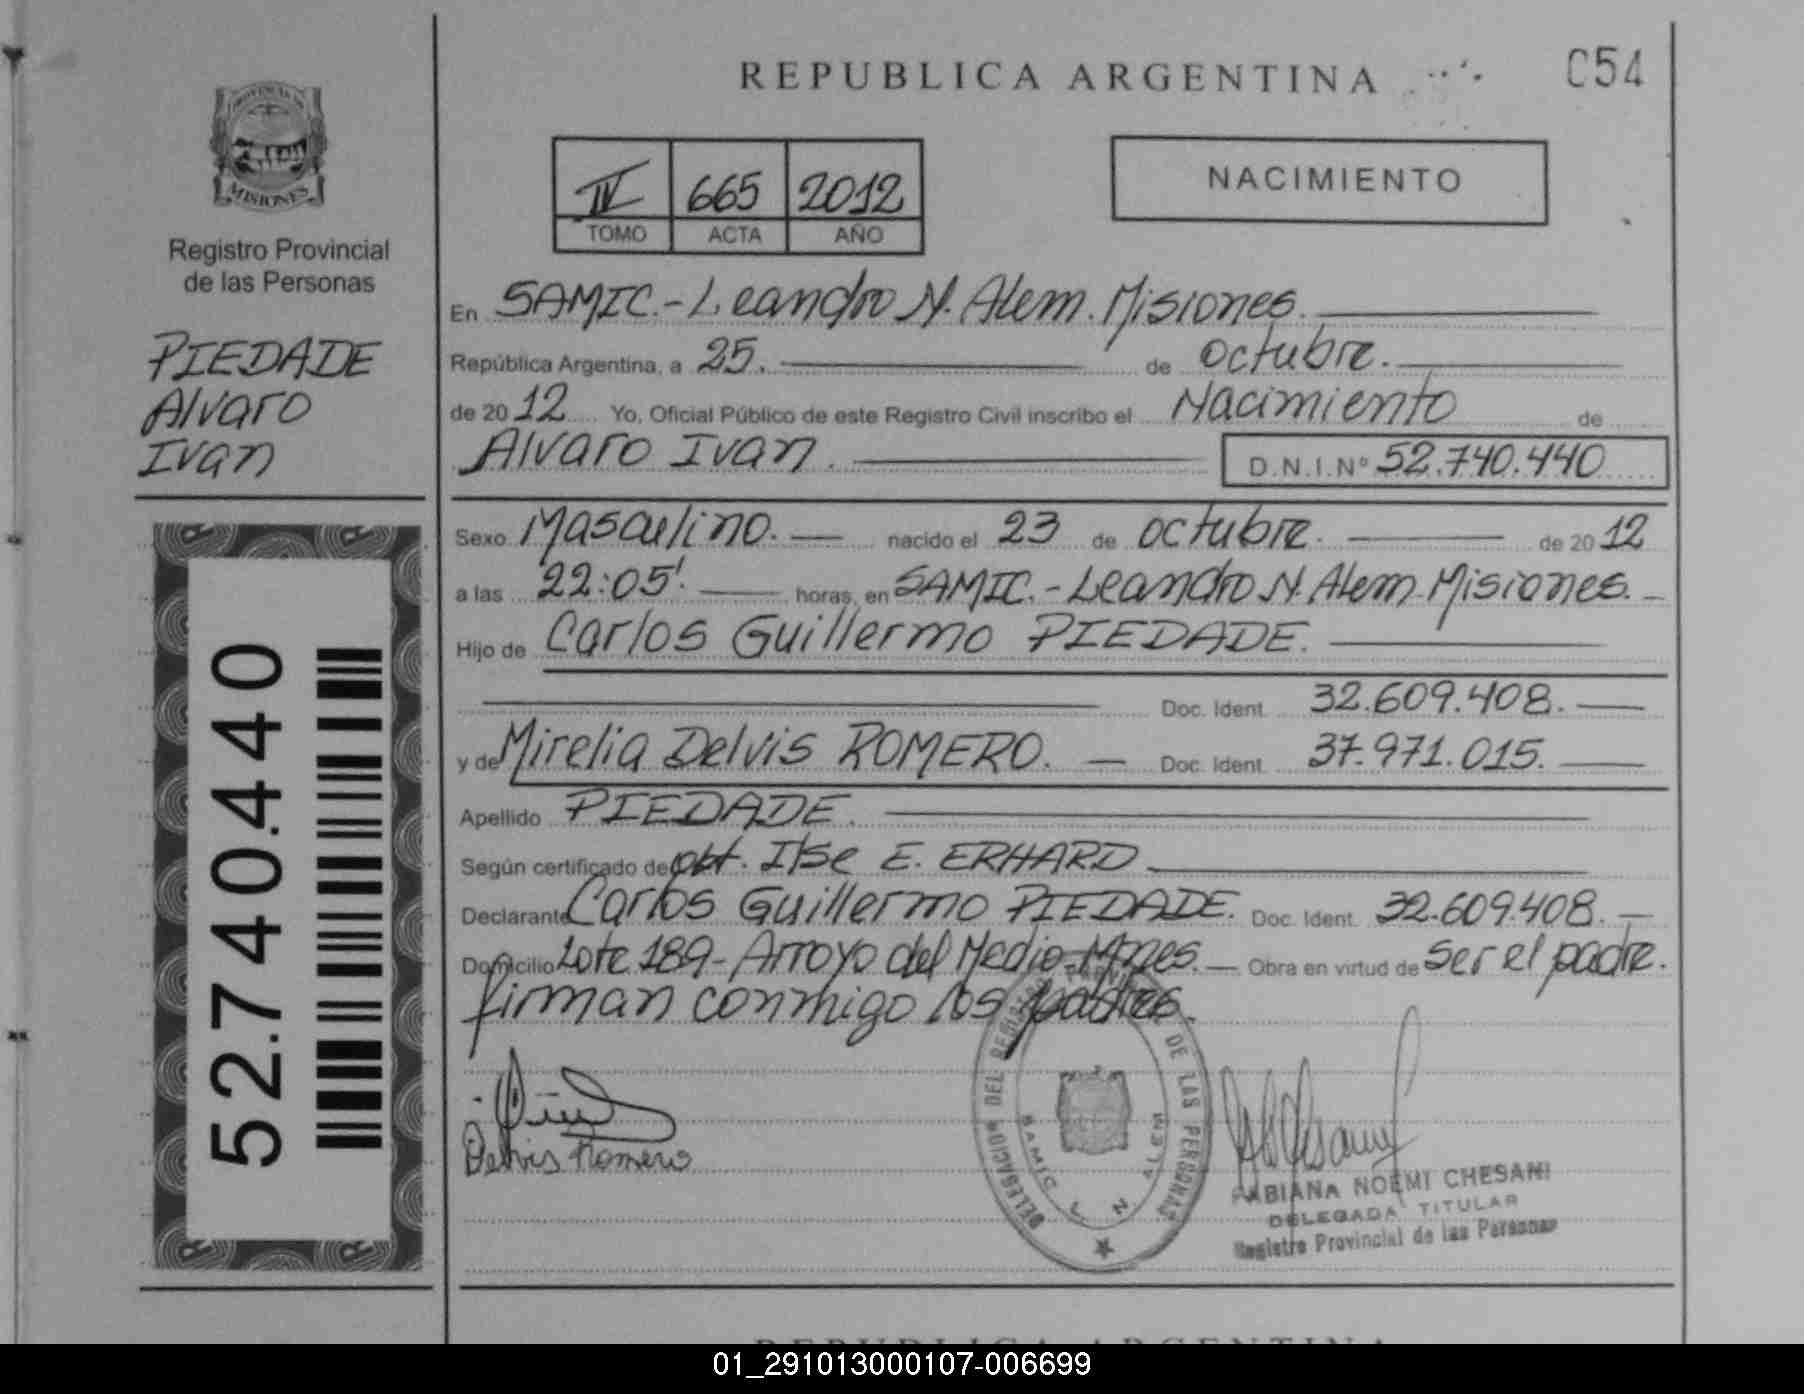 REPUBLICA ARGENTINA
C54
PROVINCIA DE
MISIONES
Registro Provincial
de las Personas
PIEDADE
Alvaro
Ivan
52.740.440
IV 665 2012
TOMO ACTA AÑO
NACIMIENTO
En SAMIC.- Leandro N. Alem. Misiones.
República Argentina, a 25. de octubre.
de 2012 Yo, Oficial Público de este Registro Civil inscribo el Nacimiento de
Alvaro Ivan. D.N.I.Nº 52.740.440
Sexo Masculino. nacido el 23 de octubre. de 2012
a las 22:05'. horas, en SAMIC.- Leandro N. Alem. Misiones.
Hijo de Carlos Guillermo PIEDADE.
Doc. Ident. 32.609.408.
y de Mirelia Delvis ROMERO. Doc. Ident. 37.971.015.
Apellido PIEDADE.
Según certificado de obt. Ilse E. ERHARD
Declarante Carlos Guillermo PIEDADE. Doc. Ident. 32.609.408.
Domicilio Lote 189- Arroyo del Medio Mnes. Obra en virtud de ser el padre.
firman conmigo los padres.
Delvis Romero
DELEGACION DEL REGISTRO PROVINCIAL DE LAS PERSONAS
SAMIC L N ALEM
FABIANA NOEMI CHESANI
DELEGADA TITULAR
Registro Provincial de las Personas
REPUBLICA ARGENTINA
01_291013000107-006699